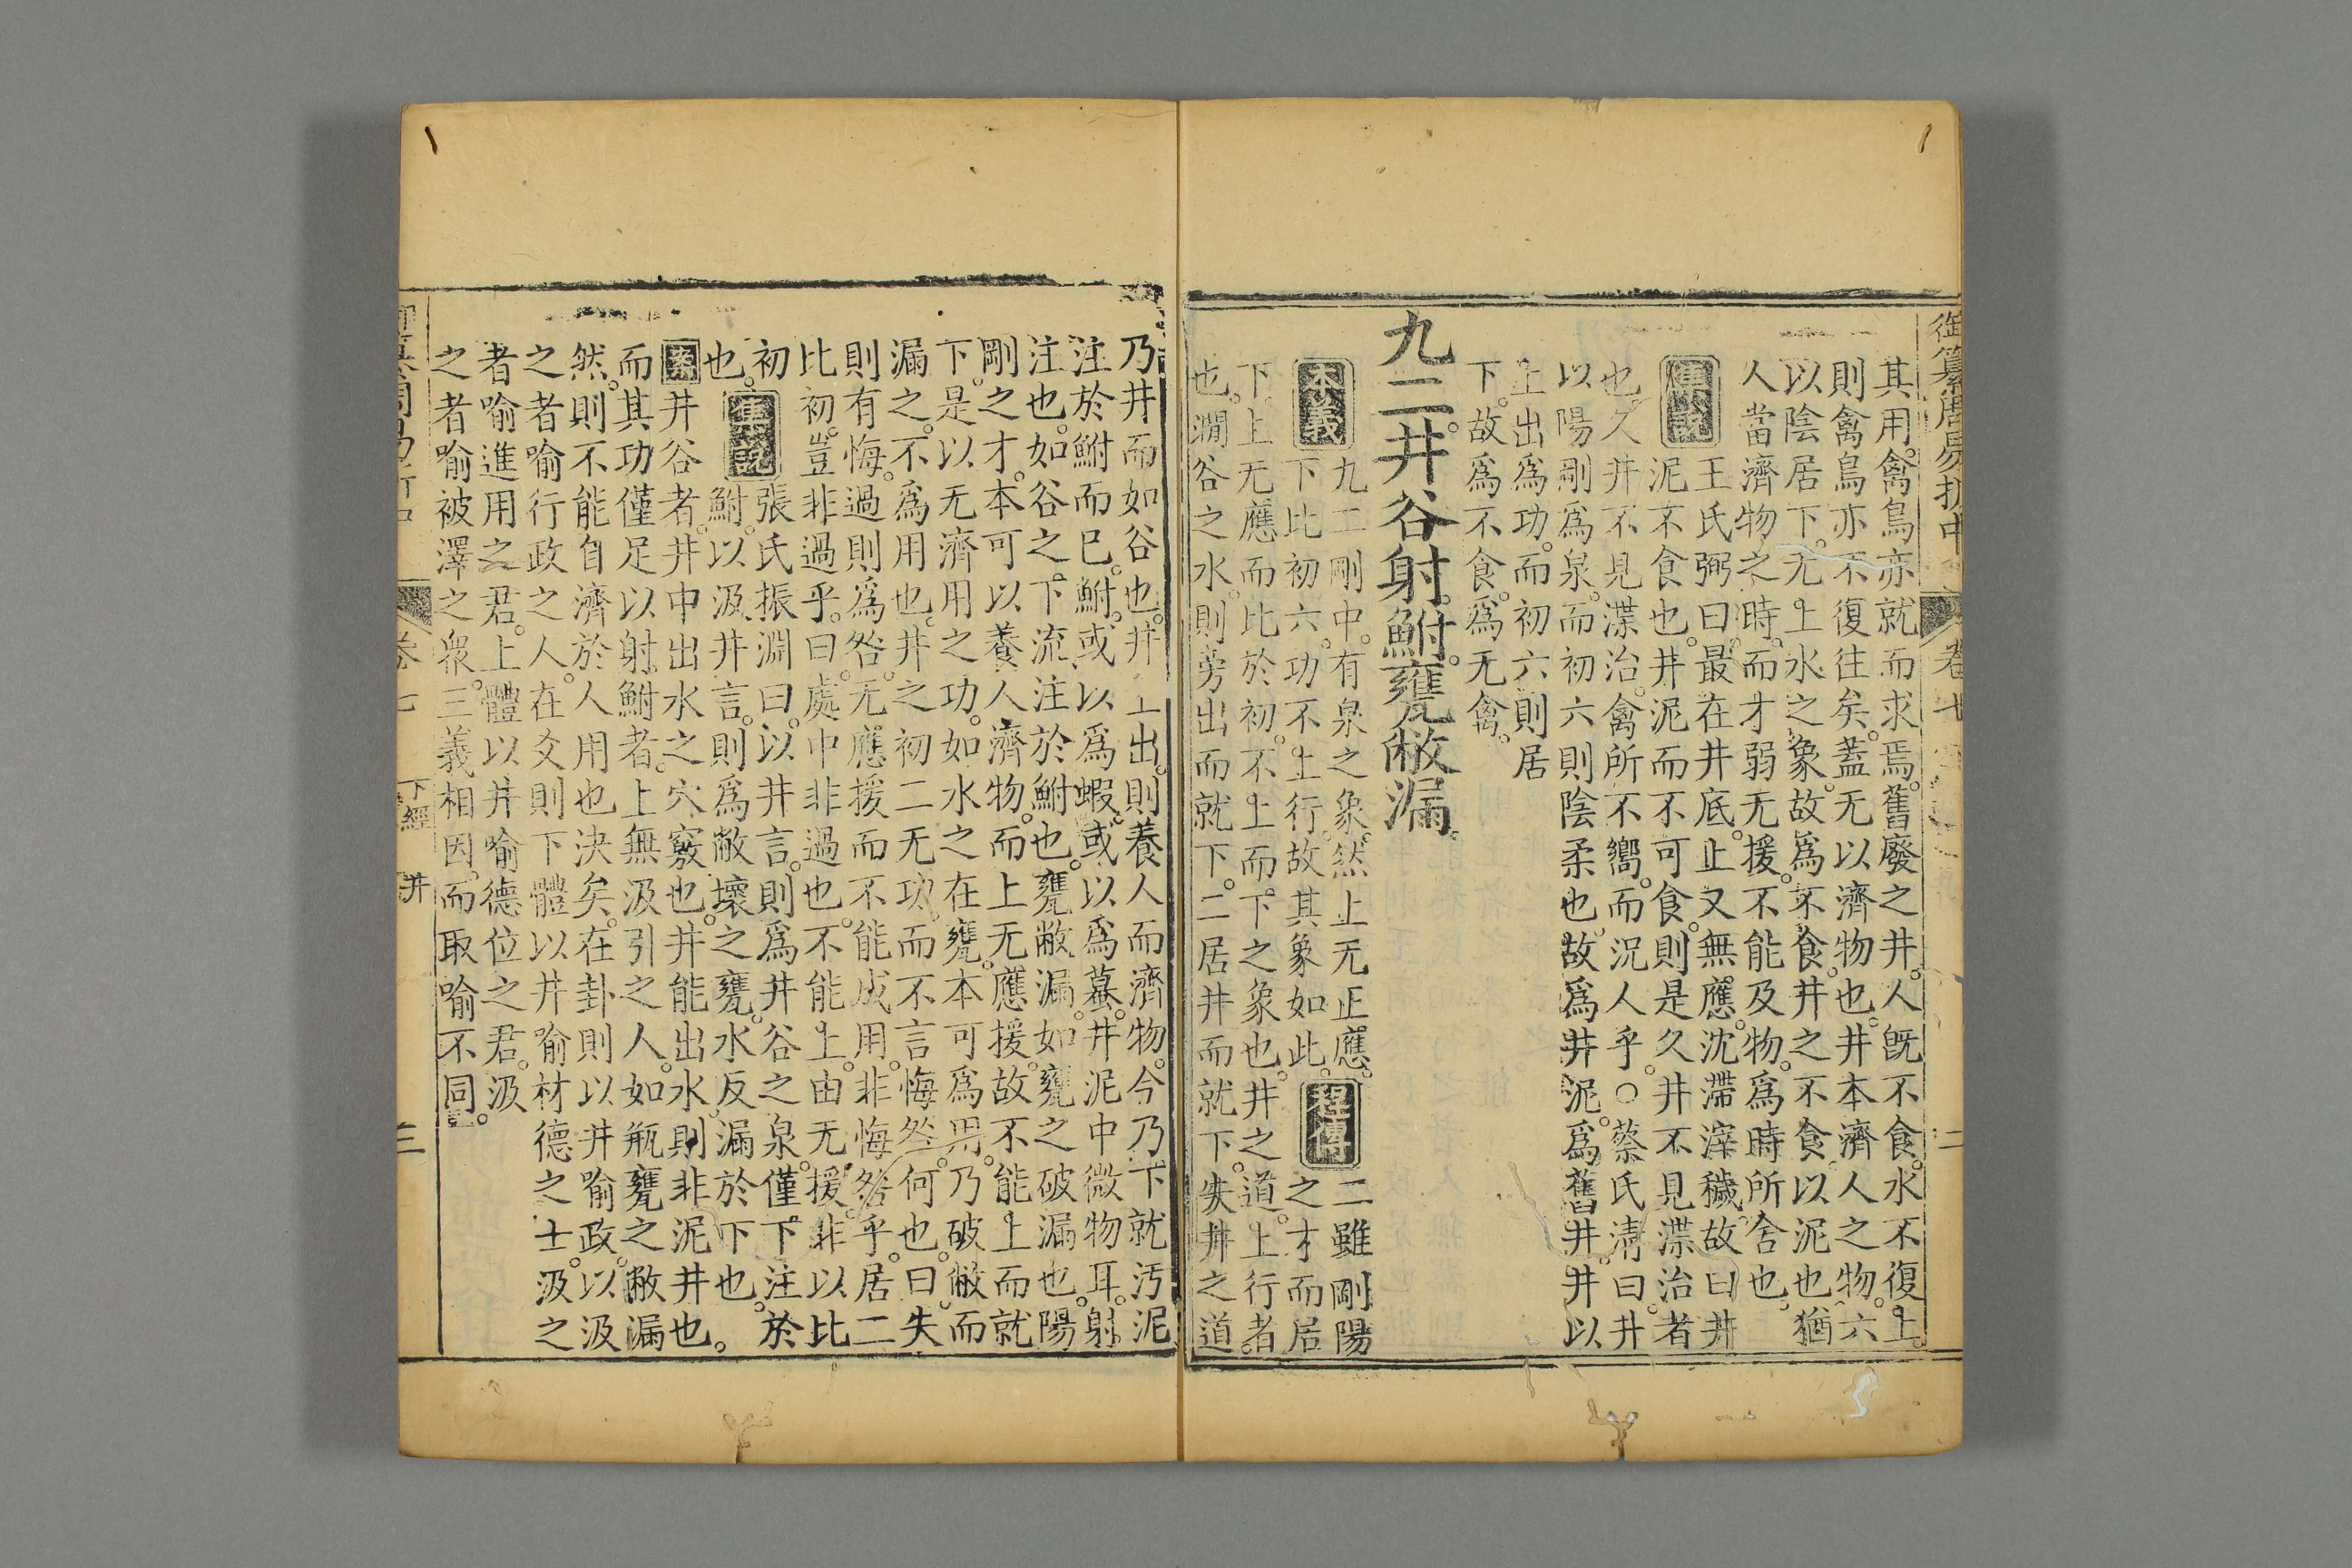 御纂周易折中 卷七 二
其用。禽鳥亦就而求焉。舊廢之井。人既不食。水不復上。
則禽鳥亦不復往矣。蓋无以濟物也。井本濟人之物。六
以陰居下。无上水之象。故爲不食。井之不食。以泥也。猶
人當濟物之時。而才弱无援。不能及物。爲時所舍也。
集說 王氏弼曰。最在井底。上又無應。沈滯滓穢。故曰井
泥不食也。井泥而不可食。則是久井不見渫治者
也。久井不見渫治。禽所不嚮。而況人乎。○蔡氏淸曰。井
以陽剛爲泉。而初六則陰柔也。故爲井泥。爲舊井。井以
上出爲功。而初六則居
下。故爲不食。爲无禽。
九二。井谷射鮒。甕敝漏。
本義 九二剛中。有泉之象。然上无正應。
下比初六。功不上行。故其象如此。
程傳 二雖剛陽
之才而居
下。上无應而比於初。不上而下之象也。井之道。上行者
也。澗谷之水。則旁出而就下。二居井而就下。失井之道。
乃井而如谷也。井上出。則養人而濟物。今乃下就汚泥
注於鮒而已。鮒。或以爲蝦。或以爲蟇。井泥中微物耳。射。
注也。如谷之下流注於鮒也。甕敝漏。如甕之破漏也。陽
剛之才。本可以養人濟物。而上无應援。故不能上而就
下。是以无濟用之功。如水之在甕。本可爲用。乃破敝而
漏之。不爲用也。井之初二无功。而不言悔咎。何也。曰。失
則有悔。過則爲咎。无應援而不能成用。非悔咎乎。居二
比初。豈非過乎。曰。處中非過也。不能上。由无援。非以比
初
也。
集說 張氏振淵曰。以井言。則爲井谷之泉。僅下注於
鮒。以汲井言。則爲敝壞之甕。水反漏於下也。
案 井谷者。井中出水之穴竅也。井能出水。則非泥井也。
而其功僅足以射鮒者。上無汲引之人。如瓶甕之敝漏
然。則不能自濟於人用也決矣。在卦則以井喻政。以汲
之者喻行政之人。在爻則下體以井喻材德之士。汲之
者喻進用之君。上體以井喻德位之君。汲
之者喻被澤之衆。三義相因。而取喻不同。
卷七 下經 井 三